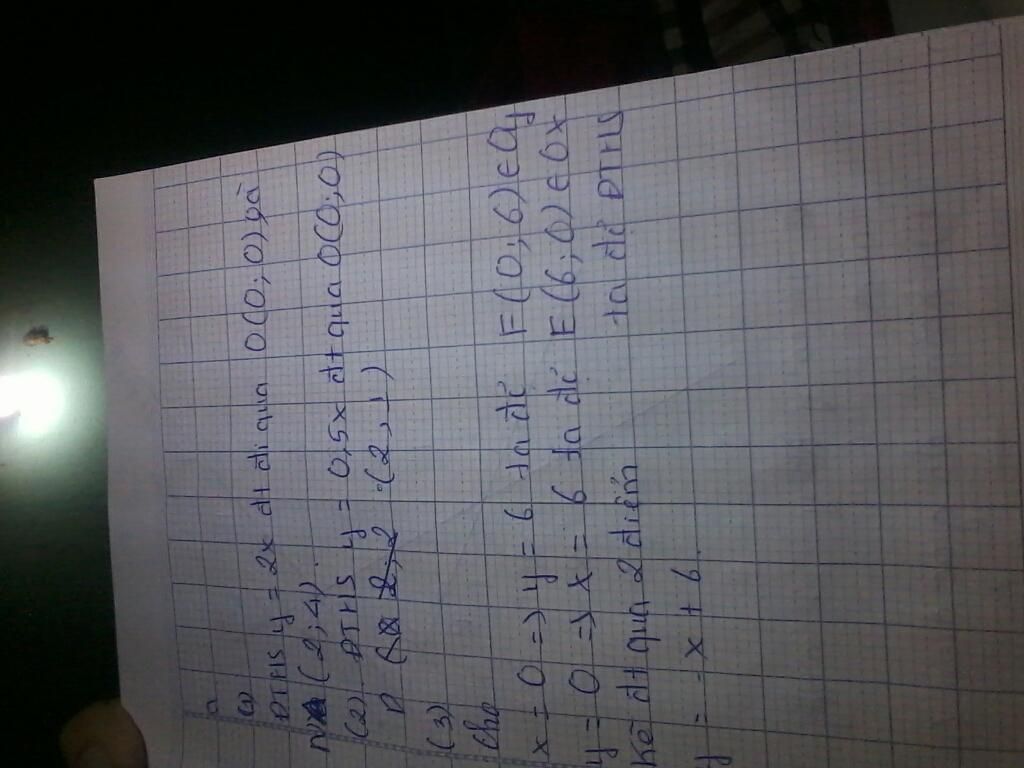 a
(1)
ĐTHS y = 2x đt đi qua O(0; 0) và
(2; 4).
(2) ĐTHS y = 0,5x đt qua O(0; 0)
D (2, 1)
(3)
Cho
x = 0 => y = 6 ta đc F(0; 6) ∈ Oy
y = 0 => x = 6 ta đc E(6; 0) ∈ Ox
Kẻ đt qua 2 điểm ta đc ĐTHS
y = -x + 6.